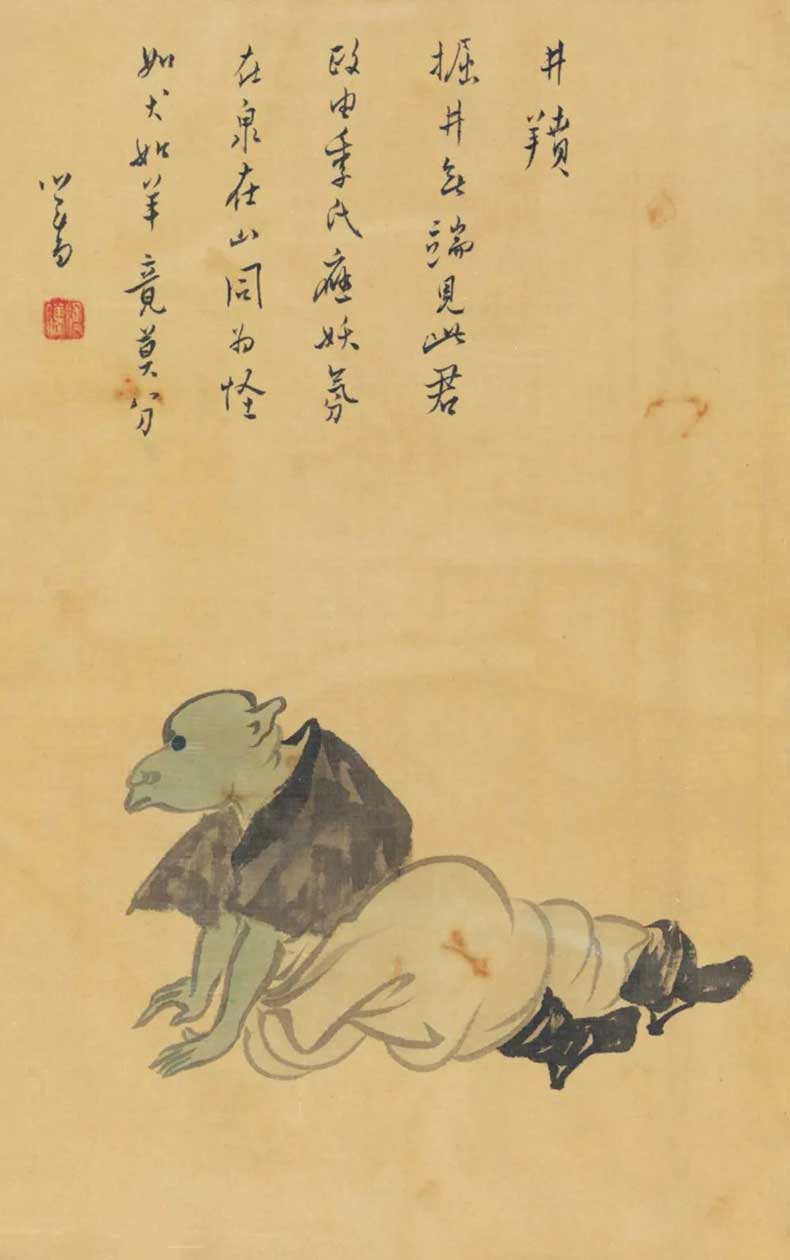 井羵
掘井無端見此君
政由季氏應妖氛
在泉在山同為怪
如犬如羊竟莫分
心畬